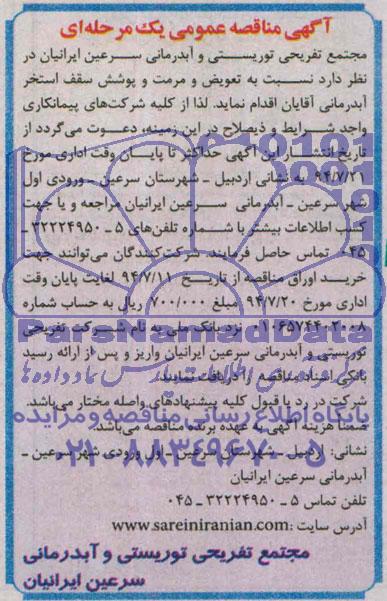 آگهی مناقصه عمومی یک مرحله‌ای
مجتمع تفریحی توریستی و آبدرمانی سرعین ایرانیان در
نظر دارد نسبت به تعویض و مرمت و پوشش سقف استخر
آبدرمانی آقایان اقدام نماید. لذا از کلیه شرکت‌های پیمانکاری
واجد شرایط و ذیصلاح در این زمینه، دعوت می‌گردد از
تاریخ انتشار این آگهی حداکثر تا پایان وقت اداری مورخ
۹۴/۷/۲۱ به نشانی اردبیل ـ شهرستان سرعین ـ ورودی اول
شهر سرعین ـ آبدرمانی سرعین ایرانیان مراجعه و یا جهت
کسب اطلاعات بیشتر با شماره تلفن‌های ۵ ـ ۳۲۲۲۴۹۵۰ ـ
۰۴۵ تماس حاصل فرمایند. شرکت‌کنندگان می‌توانند جهت
خرید اوراق مناقصه از تاریخ ۹۴/۷/۱۱ لغایت پایان وقت
اداری مورخ ۹۴/۷/۲۰ مبلغ ۷۰۰/۰۰۰ ریال به حساب شماره
۰۱۰۶۵۷۴۴۰۲۰۰۸ نزد بانک ملی به نام شرکت تفریحی
توریستی و آبدرمانی سرعین ایرانیان واریز و پس از ارائه رسید
بانکی اسناد مناقصه را دریافت نمایند.
شرکت در رد یا قبول کلیه پیشنهادهای واصله مختار می‌باشد.
ضمنا هزینه آگهی به عهده برنده مناقصه می‌باشد.
نشانی: اردبیل ـ شهرستان سرعین ـ اول ورودی شهر سرعین ـ
آبدرمانی سرعین ایرانیان
تلفن تماس ۵ ـ ۳۲۲۲۴۹۵۰ ـ ۰۴۵
آدرس سایت: www.sareiniranian.com
مجتمع تفریحی توریستی و آبدرمانی
سرعین ایرانیان
ParsNamadData
پایگاه اطلاع رسانی مناقصه و مزایده
۰۲۱-۸۸۳۴۹۶۷۰-۵